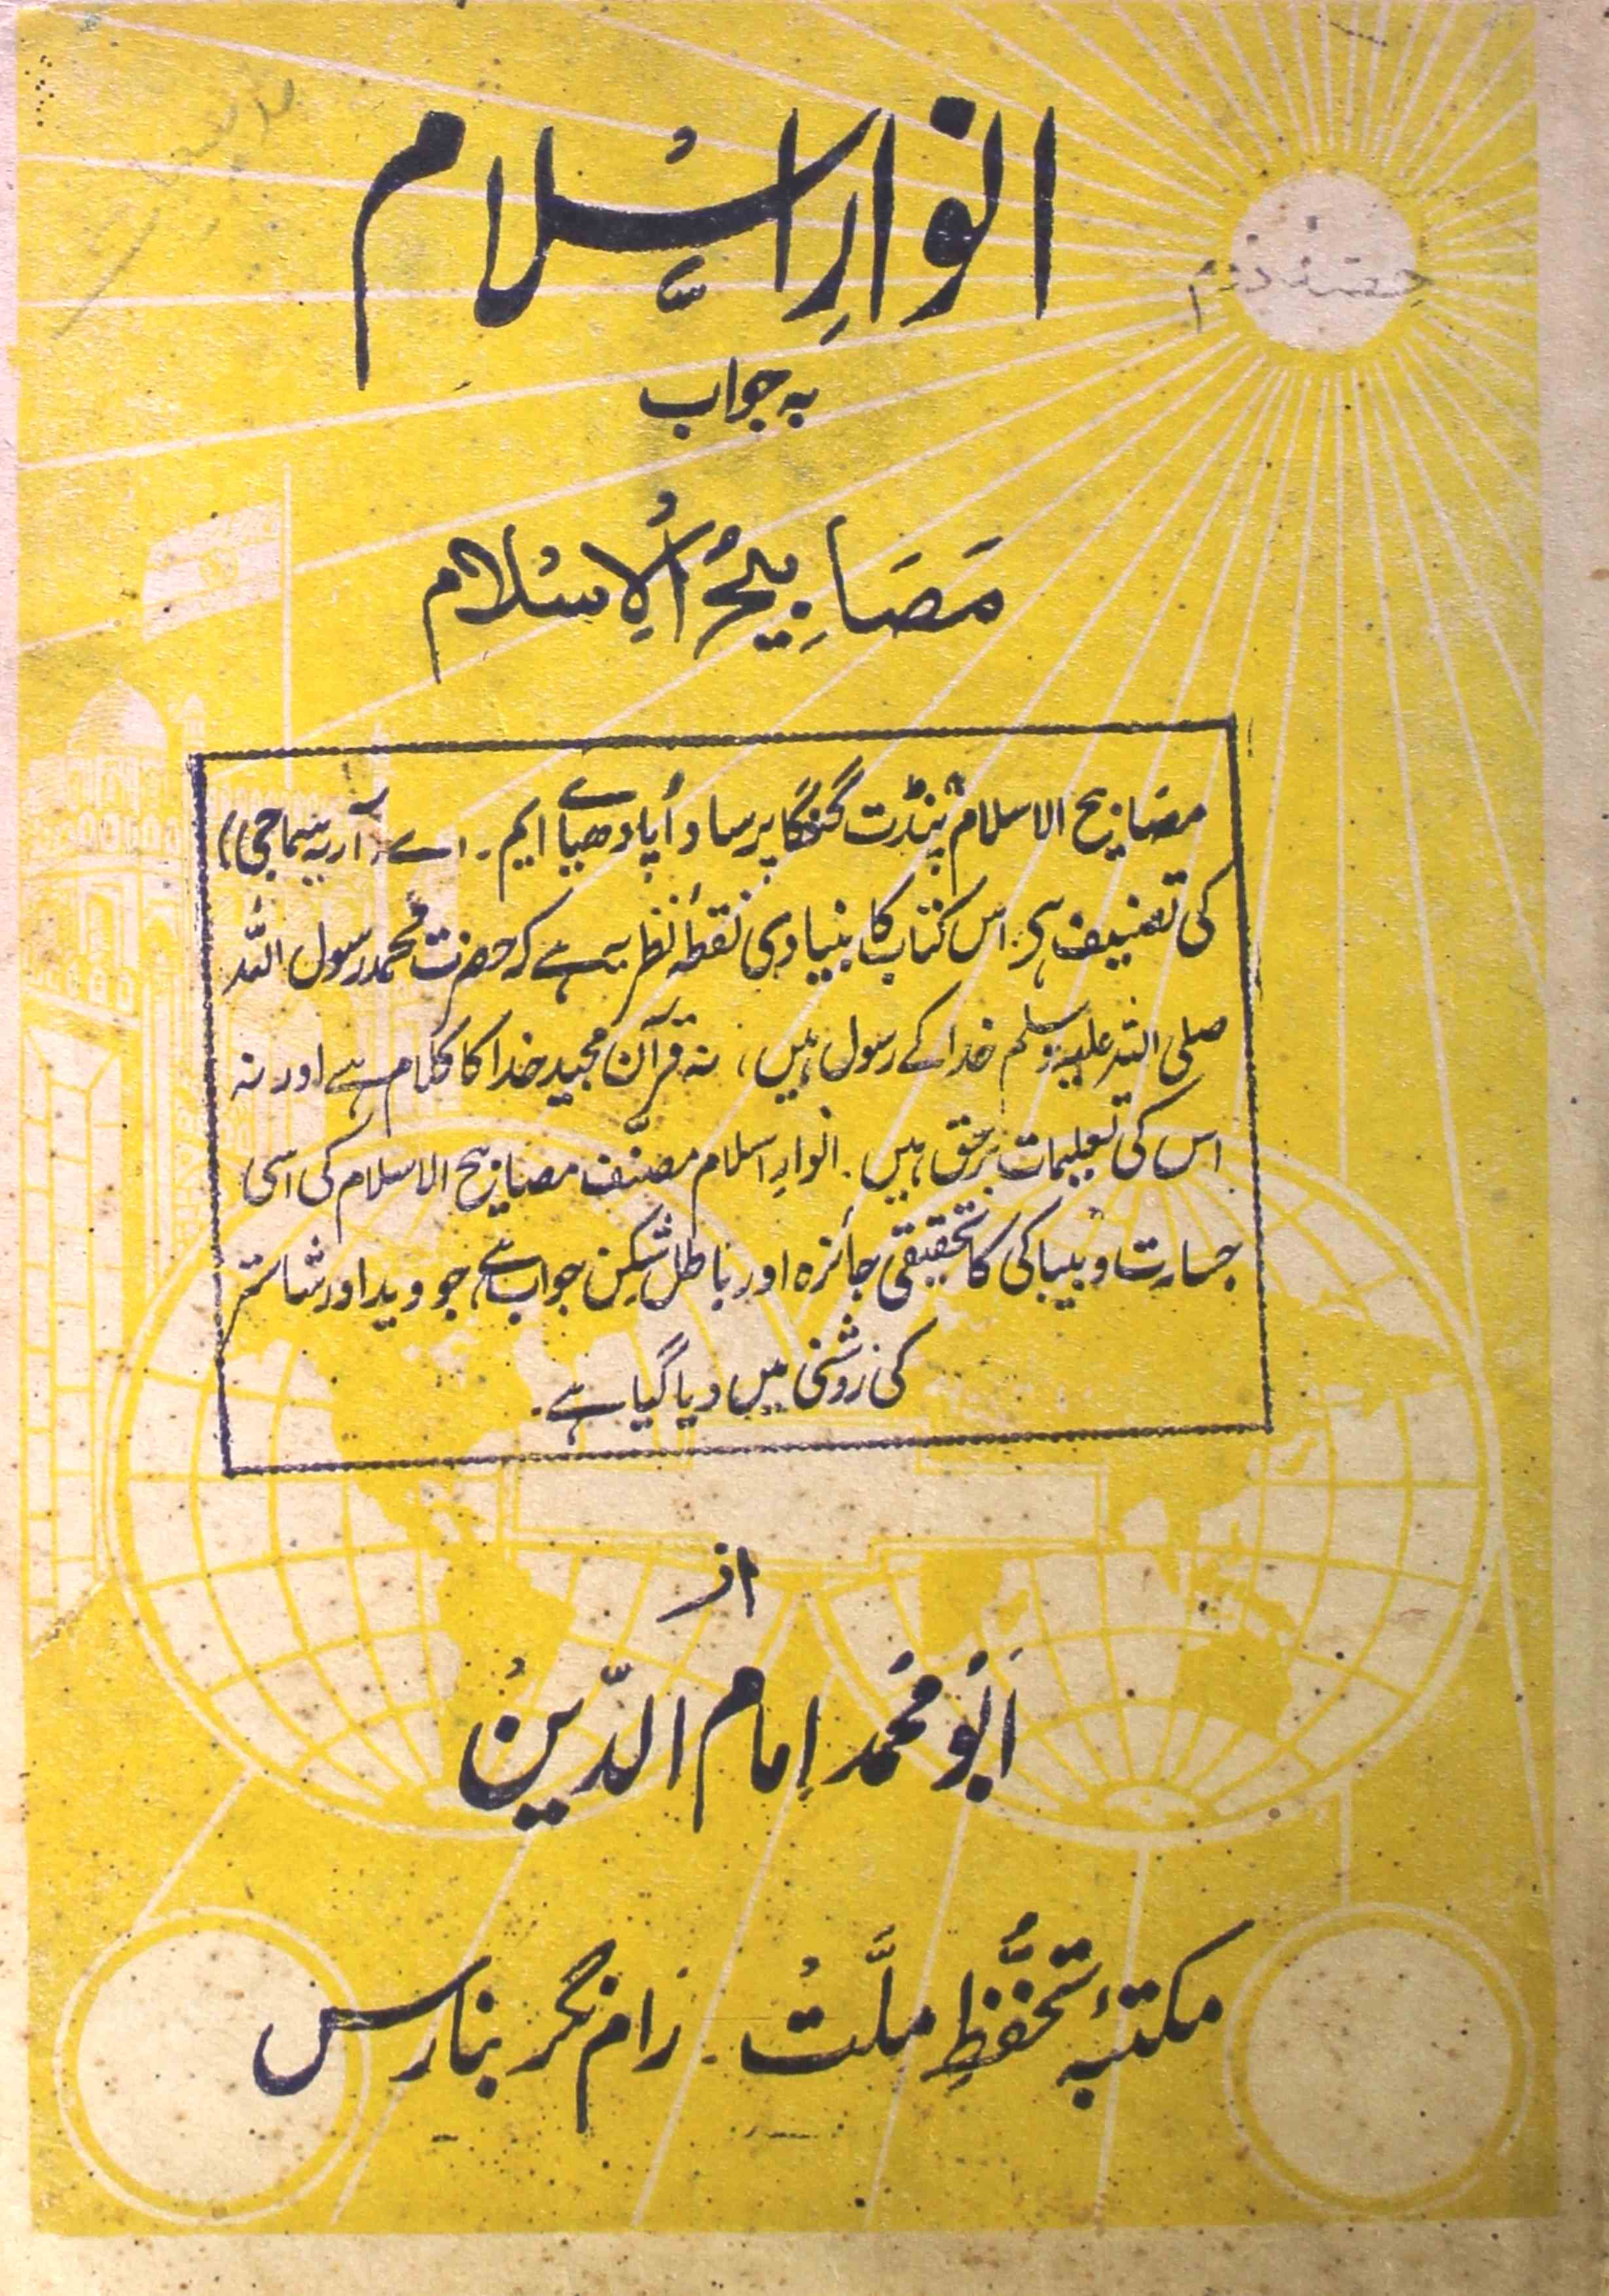 انوارِ اسلام
حصہ دوم
بہ جواب
مَصَابِیحُ الْاِسْلَام
مصابیح الاسلام پنڈت گنگا پرساد اُپادھیاے ایم۔ اے۔ (آریہ سماجی)
کی تصنیف ہی۔ اس کتاب کا بنیادی نقطۂ نظریہ ہے کہ حضرت محمد رسول اللہ
صلی اللہ علیہ وسلم خدا کے رسول ہیں، نہ قرآن مجید خدا کا کلام ہے اور نہ
اس کی تعلیمات برحق ہیں۔ انوارِ اسلام مصنّف مصابیح الاسلام کی اسی
جسارت و بیباکی کا تحقیقی جائزہ اور باطل شکن جواب ہے، جو وید اور شاستر
کی روشنی میں دیا گیا ہے۔
از
اَبُو مُحمد اِمام الدّینْ
مکتبۂ تحفُّظِ ملَّتْ۔ رام نگر بنارس